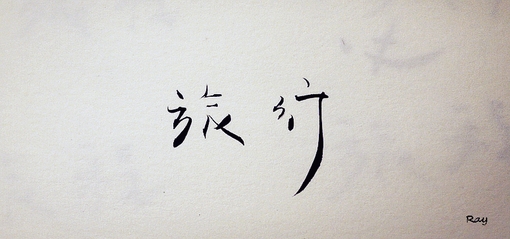 旅行
Ray